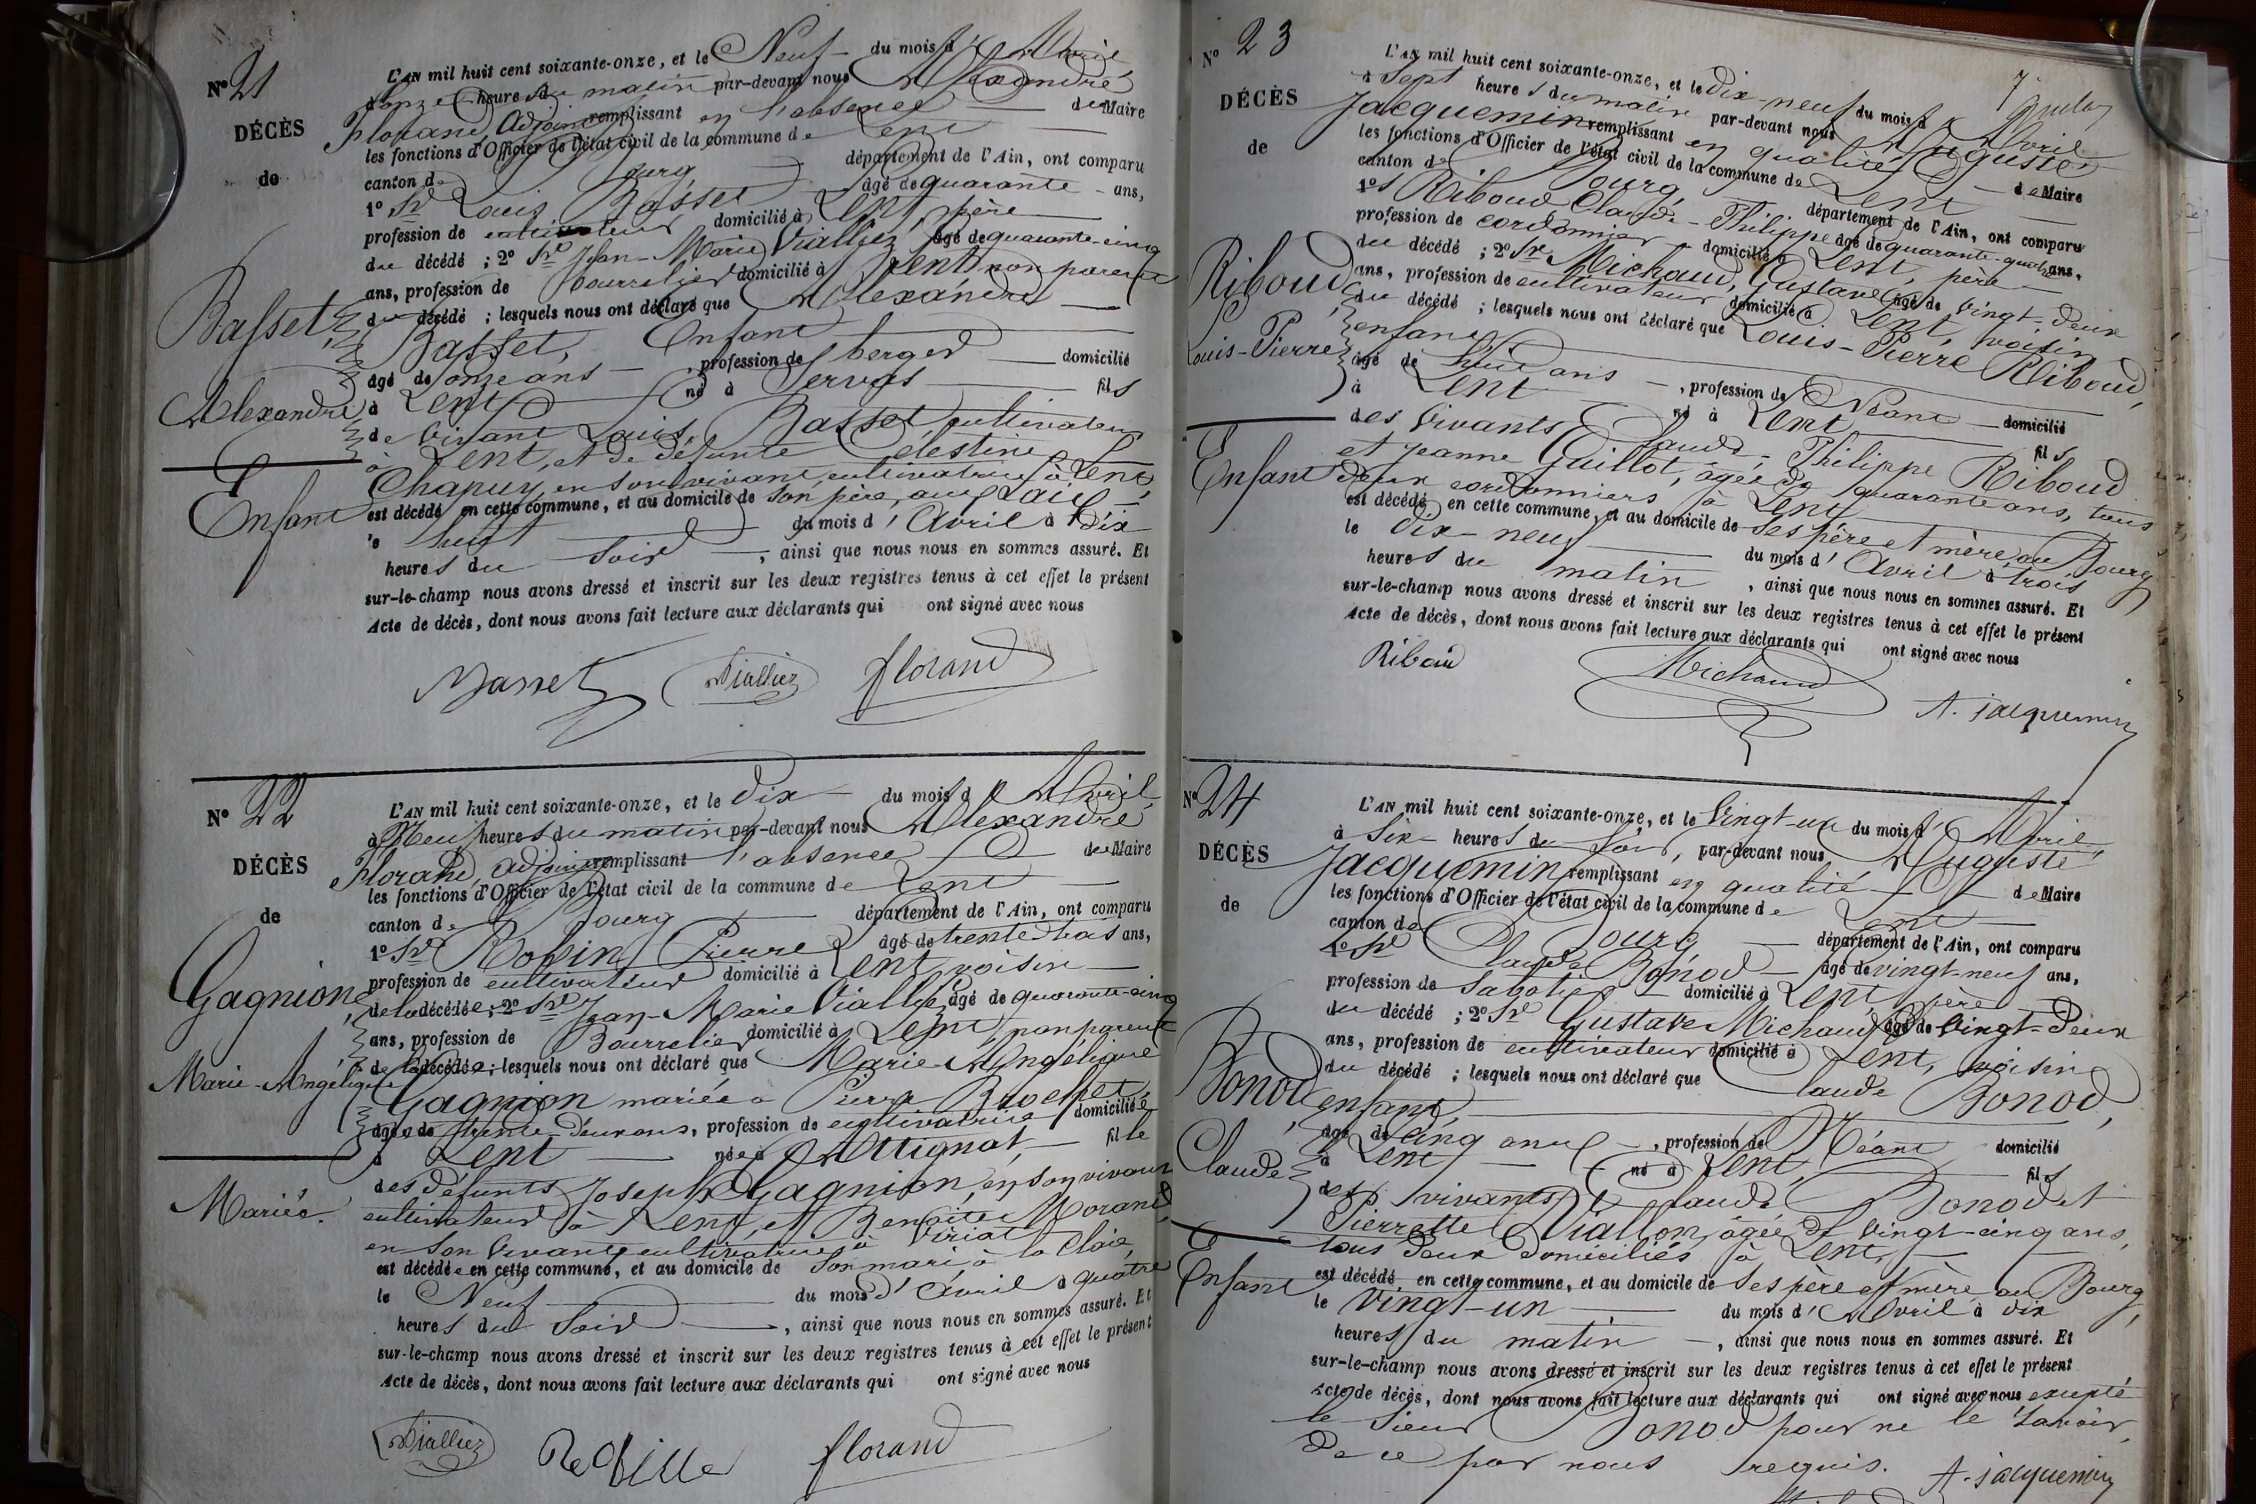 Nº 21
DÉCÈS
de
Basset,
Alexandre
Enfant
L'AN mil huit cent soixante-onze, et le Neuf du mois d'Avril
à onze heures du matin par-devant nous Alexandre
Florand, Adjoint remplissant en l'absence du Maire
les fonctions d'Officier de l'état civil de la commune de Lent
canton de Bourg département de l'Ain, ont comparu
1º Sr Louis Basset âgé de quarante ans,
profession de cultivateur domicilié à Lent, père
du décédé ; 2º Sr Jean-Marie Vialliez, âgé de quarante-cinq
ans, profession de bourrelier domicilié à Lent non parent
du décédé ; lesquels nous ont déclaré que Alexandre
Basset, Enfant
âgé de onze ans, profession de berger domicilié
à Lent né à Servas fils
de vivant Louis Basset cultivateur
à Lent, et de défunte Célestine
Chapuy, en son vivant, cultivatrice à Lent,
est décédé en cette commune, et au domicile de son père, aux
le huit du mois d'Avril à dix
heures du Soir, ainsi que nous nous en sommes assuré. Et
sur-le-champ nous avons dressé et inscrit sur les deux registres tenus à cet effet le présent
Acte de décès, dont nous avons fait lecture aux déclarants qui ont signé avec nous
Basset Vialliez florand
Nº 22
DÉCÈS
de
Gagnion,
Marie-Angélique
Mariée.
L'AN mil huit cent soixante-onze, et le Dix du mois d'Avril,
à Neuf heures du matin par-devant nous Alexandre
Florand, adjoint remplissant l'absence du Maire
les fonctions d'Officier de l'état civil de la commune de Lent
canton de Bourg département de l'Ain, ont comparu
1º Sr Robin Pierre âgé de trente-trois ans,
profession de cultivateur domicilié à Lent, voisin
de la décédée ; 2º Sr Jean-Marie Vialliez, âgé de quarante-cinq
ans, profession de Bourrelier domicilié à Lent, non parent
de la décédée ; lesquels nous ont déclaré que Marie-Angélique
Gagnion mariée à Pierre Brochet,
âgée de trente-deux ans, profession de cultivatrice domiciliée
à Lent née à Attignat, fille
des défunts Joseph Gagnion, en son vivant
cultivateur à Lent, et Benoite Morand
en son vivant cultivatrice à Viriat
est décédée en cette commune, et au domicile de son mari, à la Claie,
le Neuf du mois d'avril à quatre
heures du Soir, ainsi que nous nous en sommes assuré. Et
sur-le-champ nous avons dressé et inscrit sur les deux registres tenus à cet effet le présent
Acte de décès, dont nous avons fait lecture aux déclarants qui ont signé avec nous
Vialliez florand
Nº 23
DÉCÈS
de
Riboud
Louis-Pierre
Enfant
L'AN mil huit cent soixante-onze, et le Dix-neuf du mois d'Avril
à Sept heures du matin par-devant nous Auguste
Jacquemin remplissant en qualité de Maire
les fonctions d'Officier de l'état civil de la commune de Lent
canton de Bourg département de l'Ain, ont comparu
1º Sr Riboud Claude-Philippe âgé de quarante-quatre ans,
profession de cordonnier domicilié à Lent, père
du décédé ; 2º Sr Michaud, Gustave âgé de vingt-deux
ans, profession de cultivateur domicilié à Lent, voisin
du décédé ; lesquels nous ont déclaré que Louis-Pierre Riboud,
enfant
âgé de huit ans, profession de Néant domicilié
à Lent né à Lent fils
des vivants Claude-Philippe Riboud
et Jeanne Guillot, âgée de quarante ans, tous
deux cordonniers à Lent
est décédé en cette commune, et au domicile de ses père et mère, au Bourg
le Dix-neuf du mois d'Avril à trois
heures du matin, ainsi que nous nous en sommes assuré. Et
sur-le-champ nous avons dressé et inscrit sur les deux registres tenus à cet effet le présent
Acte de décès, dont nous avons fait lecture aux déclarants qui ont signé avec nous
Riboud Michaud A. jacquemin
Nº 24
DÉCÈS
de
Bonod,
Claude
Enfant
L'AN mil huit cent soixante-onze, et le Vingt-un du mois d'Avril,
à Six heures du Soir, par-devant nous, Auguste
Jacquemin remplissant en qualité de Maire
les fonctions d'Officier de l'état civil de la commune de Lent
canton de Bourg département de l'Ain, ont comparu
1º Sr Claude Bonod âgé de vingt-neuf ans,
profession de Sabotier domicilié à Lent, père
du décédé ; 2º Sr Gustave Michaud, âgé de Vingt-Deux
ans, profession de cultivateur domicilié à Lent, voisin
du décédé ; lesquels nous ont déclaré que Claude Bonod,
enfant,
âgé de cinq ans, profession de Néant domicilié
à Lent né à Lent, fils
des vivants Claude Bonod et
Pierrette Viallon, âgée de vingt-cinq ans,
tous deux domiciliés à Lent,
est décédé en cette commune, et au domicile de ses père et mère, au Bourg,
le Vingt-un du mois d'Avril à dix
heures du matin, ainsi que nous nous en sommes assuré. Et
sur-le-champ nous avons dressé et inscrit sur les deux registres tenus à cet effet le présent
Acte de décès, dont nous avons fait lecture aux déclarants qui ont signé avec nous excepté
le Sieur Bonod pour ne le savoir,
de ce par nous requis. A. jacquemin